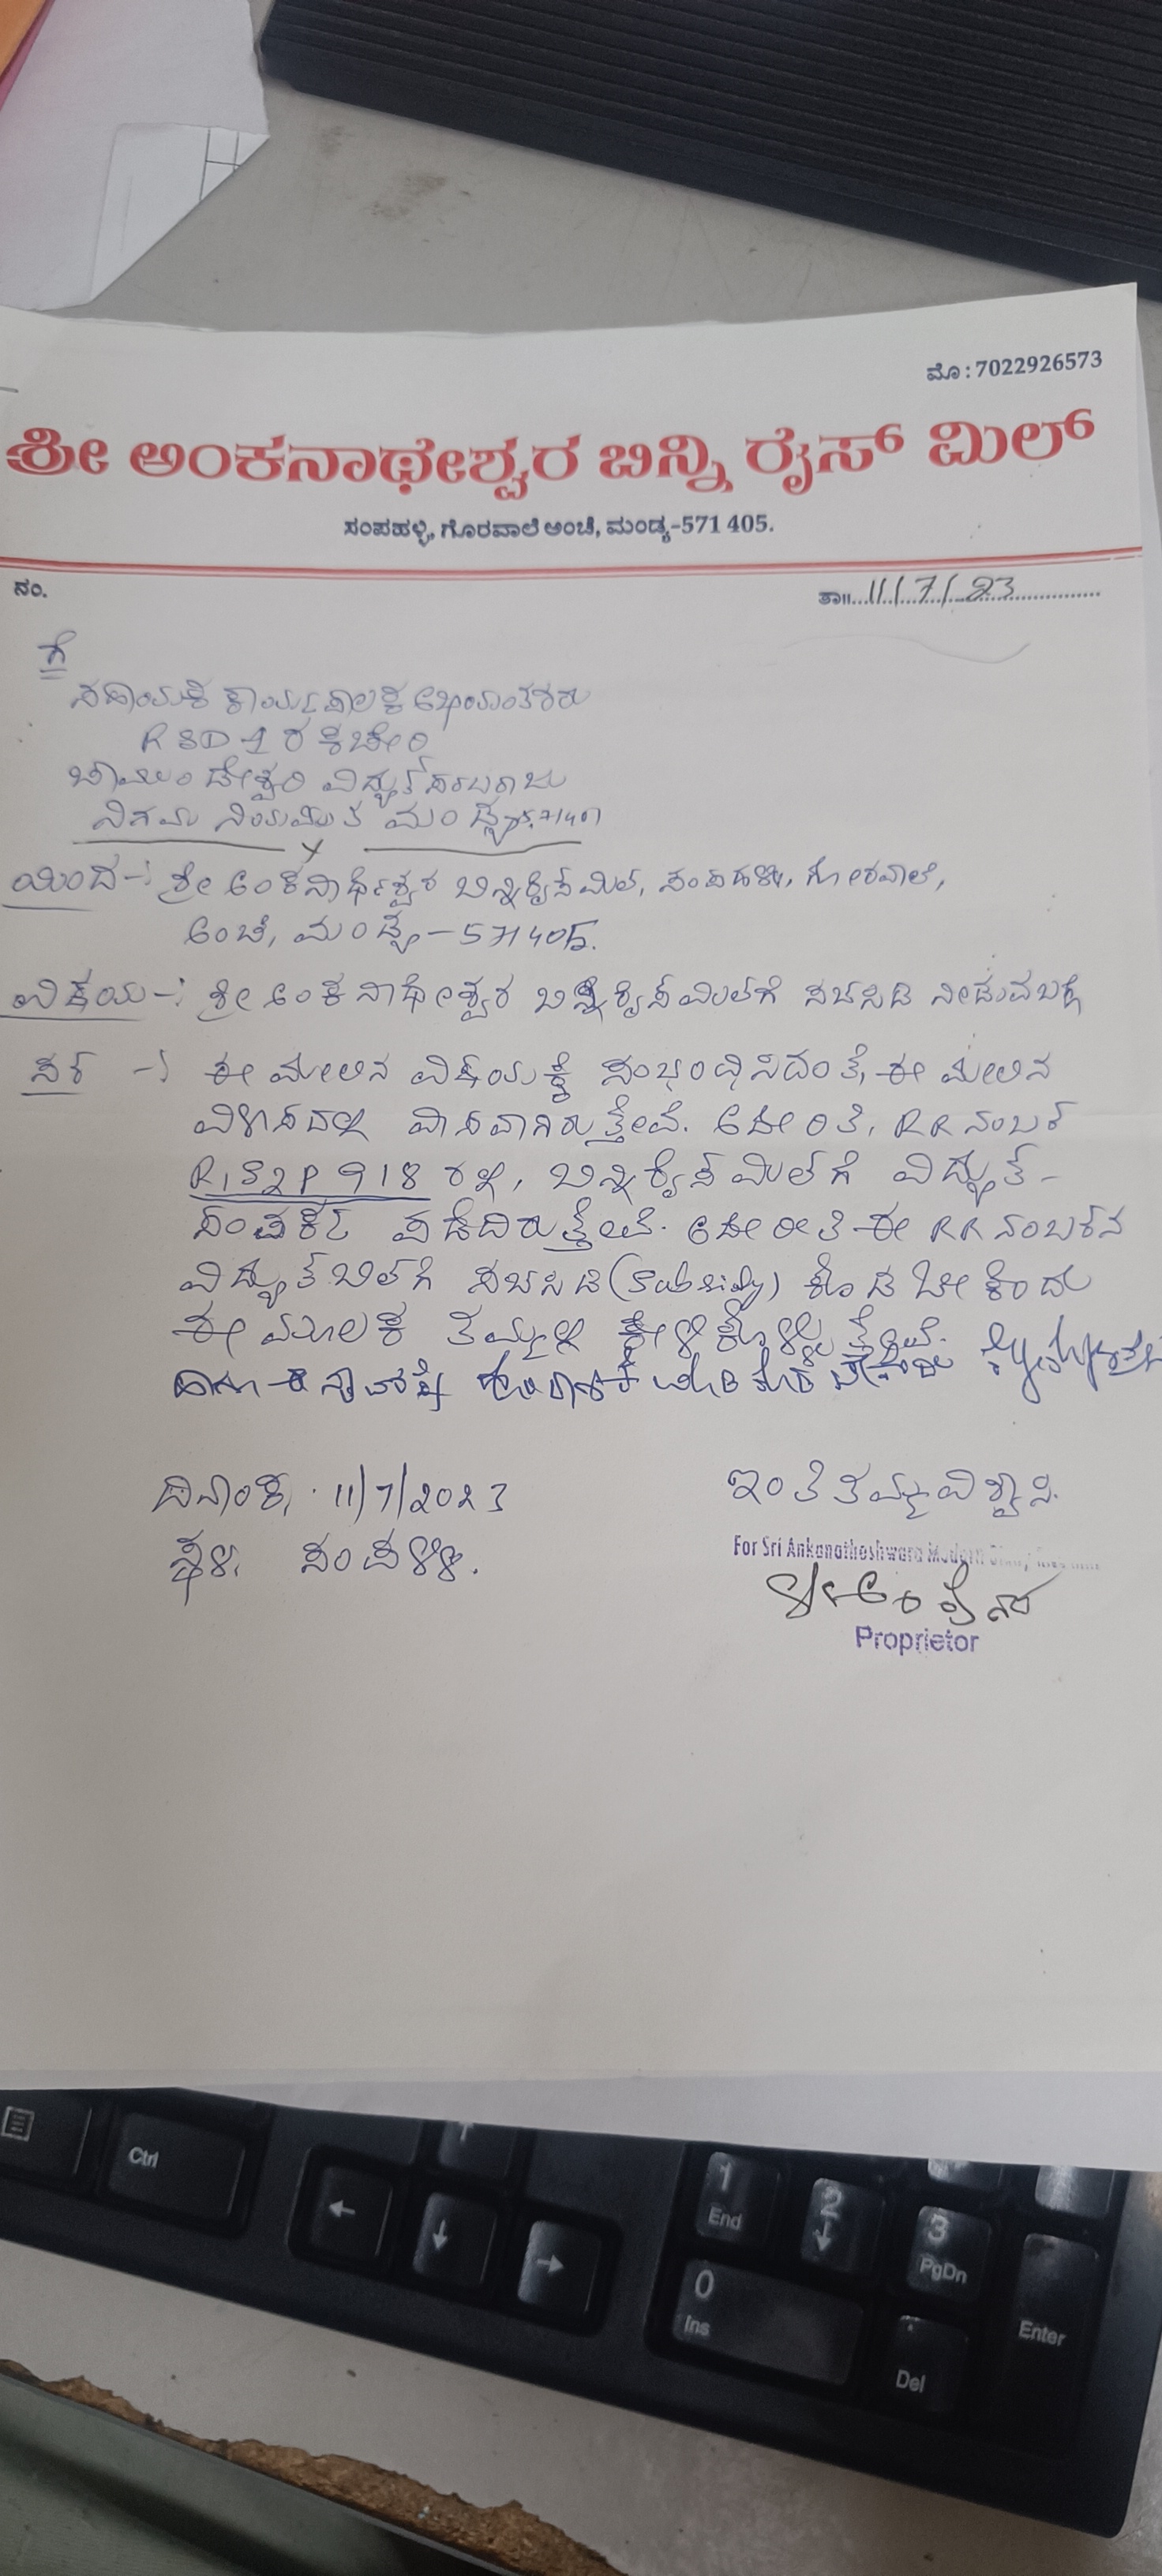 ಮೊ : 7022926573
ಶ್ರೀ ಅಂಕನಾಥೇಶ್ವರ ಬಿನ್ನಿ ರೈಸ್ ಮಿಲ್
ಸಂಪಹಳ್ಳಿ, ಗೊರವಾಲೆ ಅಂಚೆ, ಮಂಡ್ಯ-571 405.
ನಂ.
ತಾ॥...11/7/23
ಗೆ
ಸಹಾಯಕ ಕಾರ್ಯಪಾಲಕ ಅಭಿಯಂತರರು
RSD-1 ರ ಕಚೇರಿ
ಚಾಮುಂಡೇಶ್ವರಿ ವಿದ್ಯುತ್ ಸರಬರಾಜು
ನಿಗಮ ನಿಯಮಿತ ಮಂಡ್ಯ 571401
ಯಿಂದ-: ಶ್ರೀ ಅಂಕನಾಥೇಶ್ವರ ಬಿನ್ನಿರೈಸ್ ಮಿಲ್, ಸಂಪಹಳ್ಳಿ, ಗೋರವಾಲೆ,
ಅಂಚೆ, ಮಂಡ್ಯ - 571405.
ವಿಷಯ-: ಶ್ರೀ ಅಂಕನಾಥೇಶ್ವರ ಬಿನ್ನಿರೈಸ್ ಮಿಲ್‌ಗೆ ಸಬ್ಸಿಡಿ ನೀಡುವ ಬಗ್ಗೆ
ಸರ್ -: ಈ ಮೇಲಿನ ವಿಷಯಕ್ಕೆ ಸಂಬಂಧಿಸಿದಂತೆ, ಈ ಮೇಲಿನ
ವಿಳಾಸದಲ್ಲಿ ವಾಸವಾಗಿರುತ್ತೇವೆ. ಅದೇ ರೀತಿ, RR ನಂಬರ್
R1S2P 918 ರಲ್ಲಿ, ಬಿನ್ನಿರೈಸ್ ಮಿಲ್‌ಗೆ ವಿದ್ಯುತ್-
ಸಂಪರ್ಕ ಪಡೆದಿರುತ್ತೇವೆ. ಅದೇ ರೀತಿ ಈ RR ನಂಬರ್‌ನ
ವಿದ್ಯುತ್ ಬಿಲ್‌ಗೆ ಸಬ್ಸಿಡಿ (Subsidy) ಕೊಡಬೇಕೆಂದು
ಈ ಮೂಲಕ ತಮ್ಮಲ್ಲಿ ಕೇಳಿಕೊಳ್ಳುತ್ತೇವೆ.
ದಿನಾಂಕ, 11/7/2023
ಇಂತಿ ತಮ್ಮ ವಿಶ್ವಾಸಿ.
ಸ್ಥಳ, ಸಂಪಳ್ಳಿ.
For Sri Ankanatheshwara Modern
Proprietor